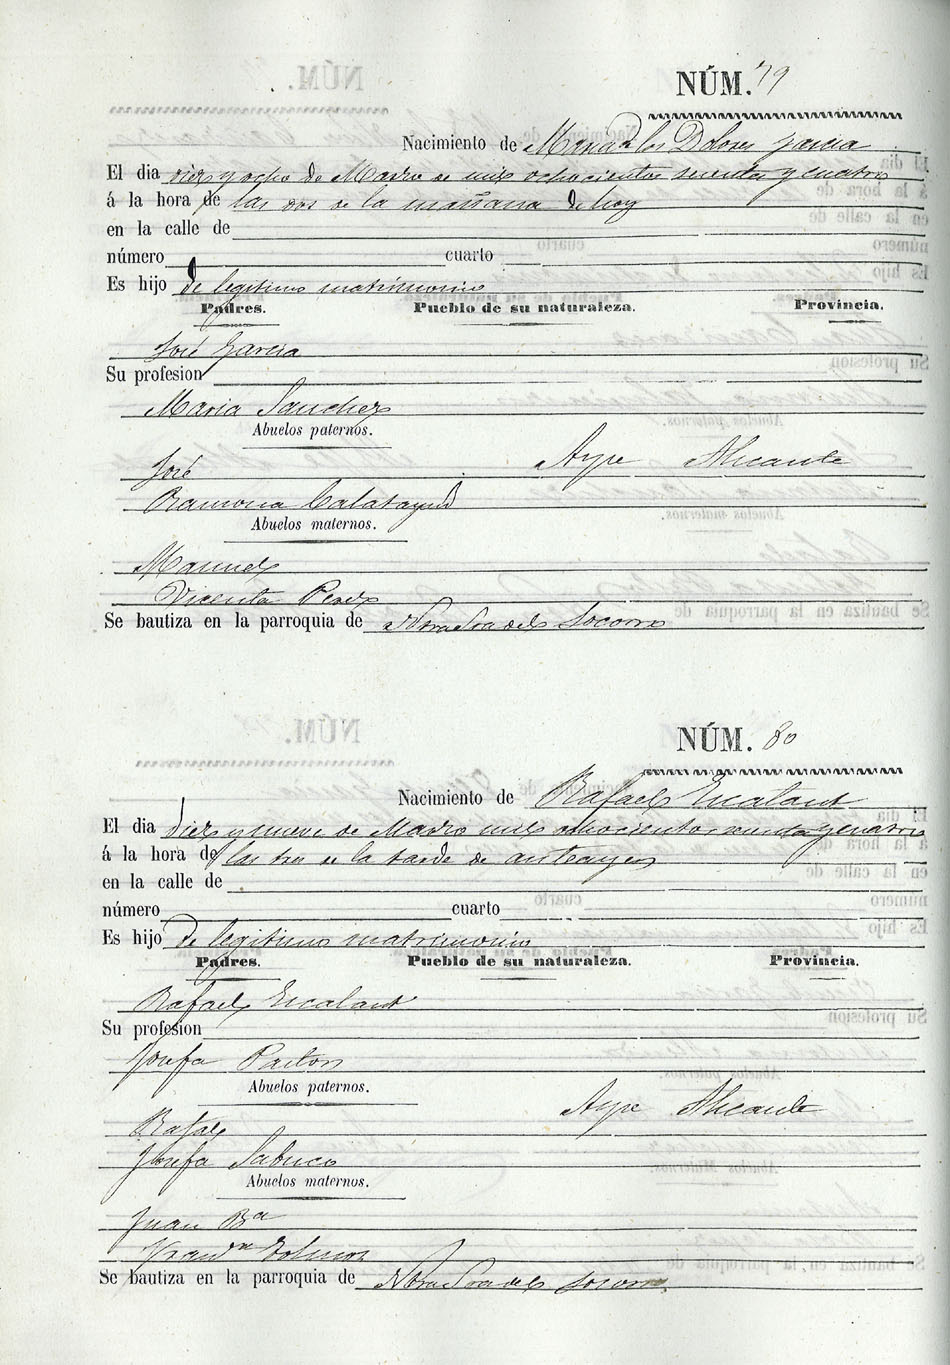 NÚM. 79
Nacimiento de Maria de los Dolores Garcia
El dia diez y ocho de Marzo de mil ochocientos setenta y cuatro
á la hora de las dos de la mañana de hoy
en la calle de
número cuarto
Es hijo de legitimo matrimonio
Padres. Pueblo de su naturaleza. Provincia.
José Garcia
Su profesion
Maria Sanchez
Abuelos paternos.
José Aspe Alicante
Ramona Calatayud
Abuelos maternos.
Manuel
Vicenta Perez
Se bautiza en la parroquia de Ntra Sra del Socorro
NÚM. 80
Nacimiento de Rafael Escalant
El dia diez y nueve de Marzo mil ochocientos setenta y cuatro
á la hora de las tres de la tarde de anteayer
en la calle de
número cuarto
Es hijo de legitimo matrimonio
Padres. Pueblo de su naturaleza. Provincia.
Rafael Escalant
Su profesion
Josefa Pastor
Abuelos paternos.
Rafael Aspe Alicante
Josefa Sabuco
Abuelos maternos.
Juan Bta
Se bautiza en la parroquia de Ntra Sra del Socorro